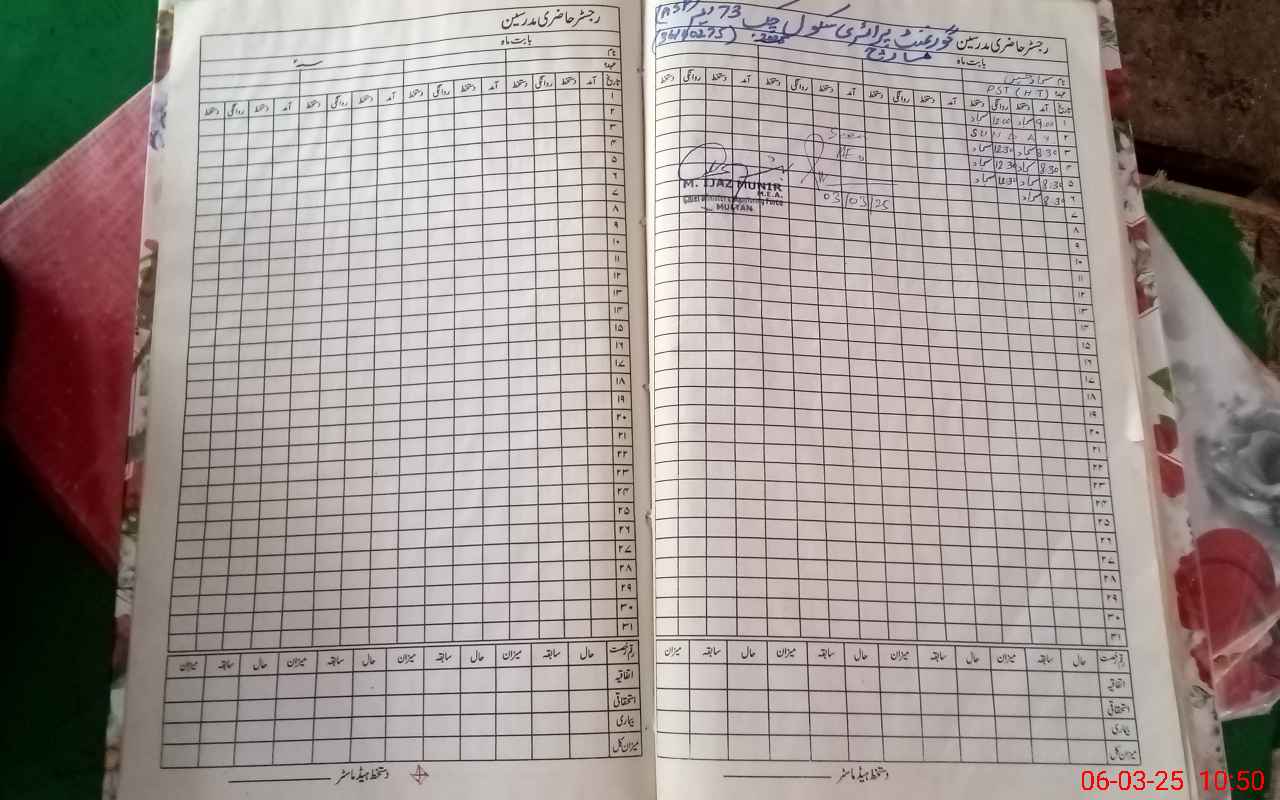 رجسٹر حاضری مدرسین
گورنمنٹ پرائمری سکول چک 73
(36110275)
بابت ماہ
نام
عہدہ PST (HT)
تاریخ آمد دستخط روانگی دستخط آمد دستخط روانگی دستخط آمد دستخط روانگی دستخط آمد دستخط روانگی دستخط
۱ 9:00 12:00
۲ SUNDAY
۳ 8:30 12:30
۴ 8:30 12:30
۵ 8:30 12:30
۶ 8:30
۷
۸
۹
۱۰
۱۱
۱۲
۱۳
۱۴
۱۵
۱۶
۱۷
۱۸
۱۹
۲۰
۲۱
۲۲
۲۳
۲۴
۲۵
۲۶
۲۷
۲۸
۲۹
۳۰
۳۱
M. IJAZ MUNIR
M.E.A.
Chief Minister's Monitoring Force
MULTAN
03/03/25
رقم رخصت حال سابقہ میزان حال سابقہ میزان حال سابقہ میزان حال سابقہ میزان
اتفاقیہ
استحقاقی
بیماری
میزان کل
دستخط ہیڈ ماسٹر
رجسٹر حاضری مدرسین
بابت ماہ
نام
عہدہ
تاریخ آمد دستخط روانگی دستخط آمد دستخط روانگی دستخط آمد دستخط روانگی دستخط آمد دستخط روانگی دستخط
۱
۲
۳
۴
۵
۶
۷
۸
۹
۱۰
۱۱
۱۲
۱۳
۱۴
۱۵
۱۶
۱۷
۱۸
۱۹
۲۰
۲۱
۲۲
۲۳
۲۴
۲۵
۲۶
۲۷
۲۸
۲۹
۳۰
۳۱
رقم رخصت حال سابقہ میزان حال سابقہ میزان حال سابقہ میزان حال سابقہ میزان
اتفاقیہ
استحقاقی
بیماری
میزان کل
دستخط ہیڈ ماسٹر
06-03-25 10:50